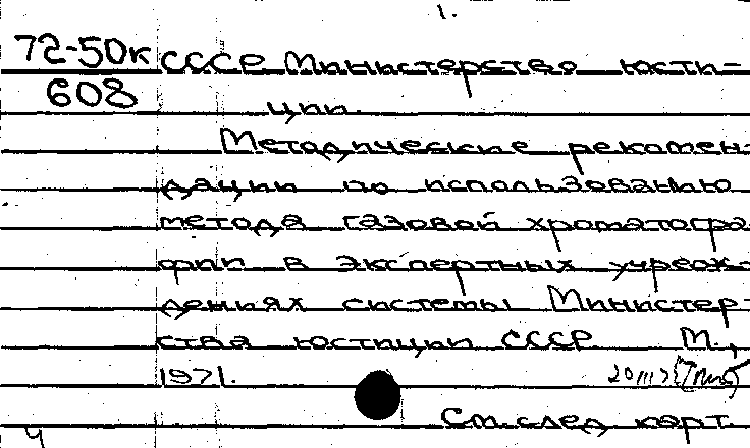 1.
72-50к СССР. Министерство юсти-
608 ции.
Методические рекомен-
дации по использованию
метода газовой хроматогра
фии в экспертных учреж-
дениях системы Министер-
ства юстиции СССР. М.,
1971.
См. след. карт.
4